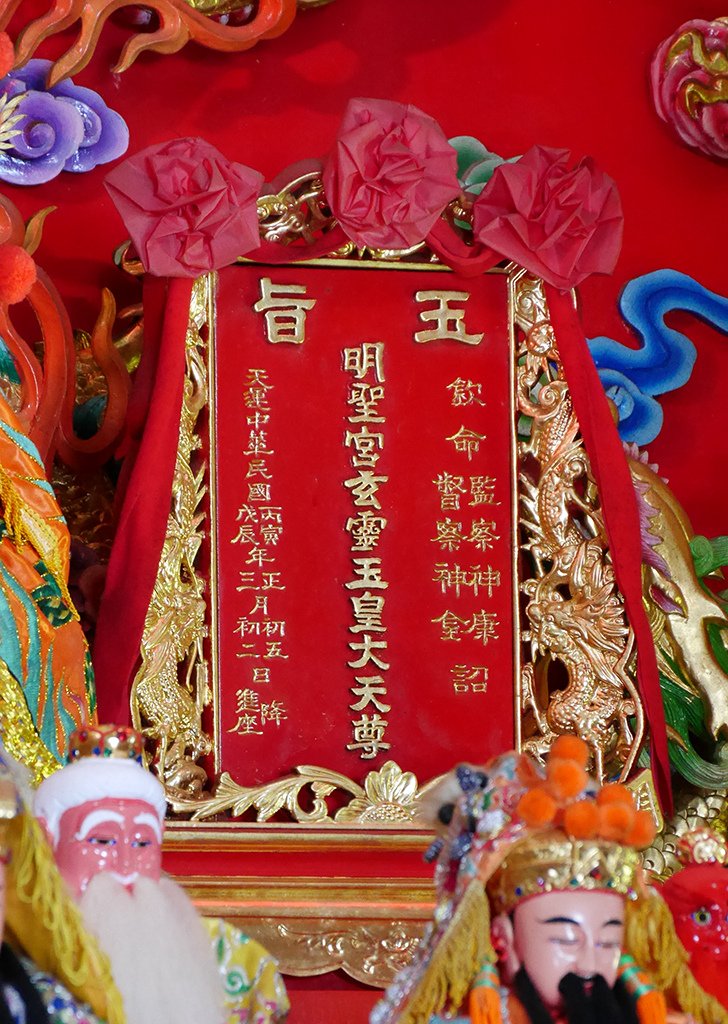 玉旨
欽命
監察神康
督察神金
詔
明聖宮玄靈玉皇大天尊
天運中華民國
丙寅年正月初五日降
戊辰三初二進座